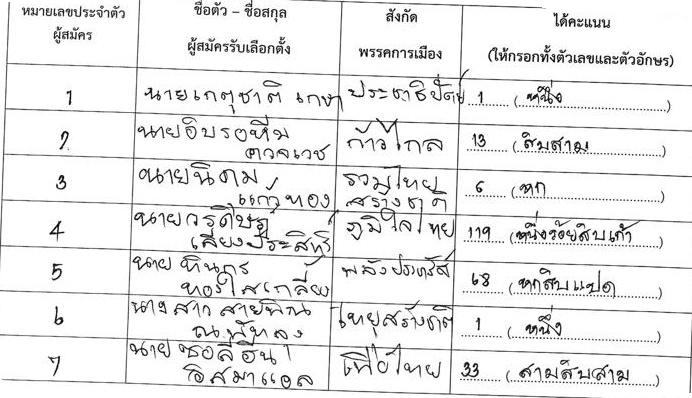 หมายเลขประจำตัว ผู้สมัคร
ชื่อตัว – ชื่อสกุล ผู้สมัครรับเลือกตั้ง
สังกัด พรรคการเมือง
ได้คะแนน (ให้กรอกทั้งตัวเลขและตัวอักษร)
1 นายเกตุชาติ เกษา ประชาธิปัตย์ 1 (หนึ่ง)
2 นายอิบรอหีม ก้าวไกล 13 (สิบสาม)
3 นายนิคม แก้วทอง รวมไทย สร้างชาติ 6 (หก)
4 นายวรศิษฎ์ เลียงประสิทธิ์ ภูมิใจไทย 119 (หนึ่งร้อยสิบเก้า)
5 นาย ทองใสเกลี้ยง พลังประชารัฐ 68 (หกสิบแปด)
6 นางสาว สายพิณ ณ พัทลุง ไทยสร้างไทย 1 (หนึ่ง)
7 นาย อิสมาแอล เพื่อไทย 33 (สามสิบสาม)